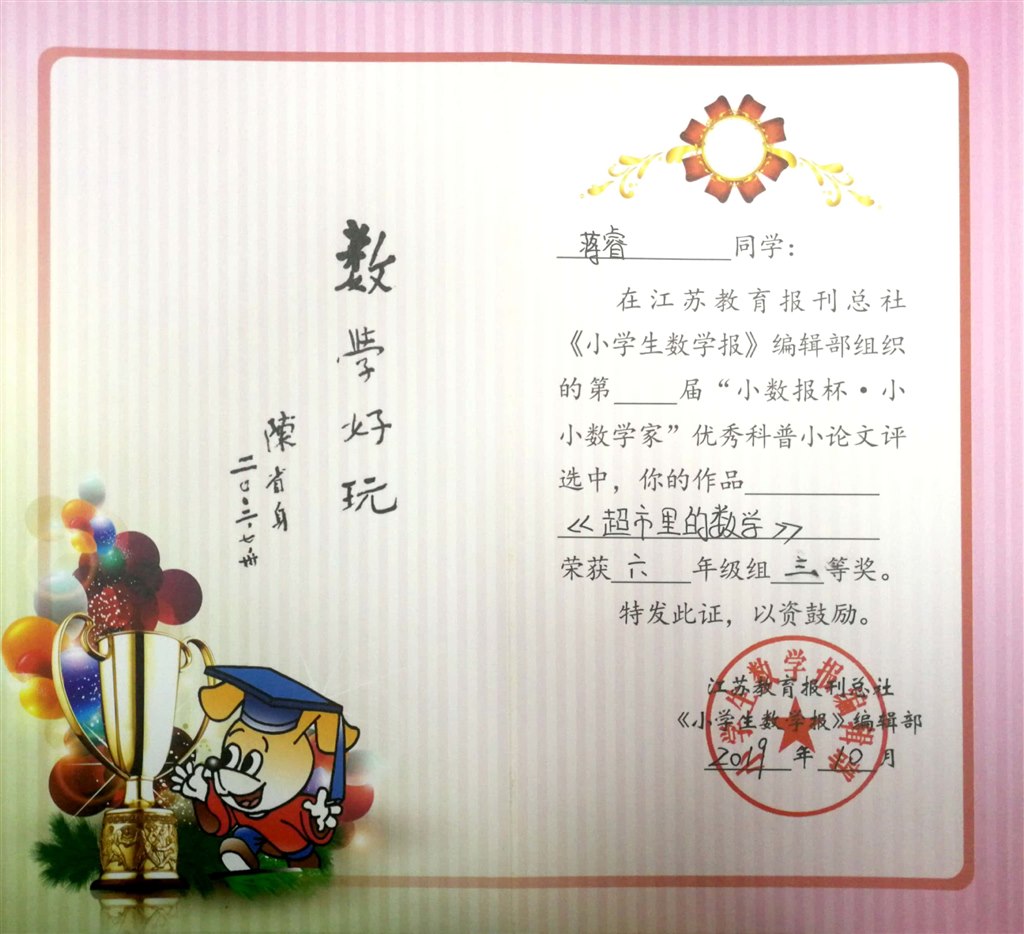 数学好玩
陳省身
蒋睿同学：
在江苏教育报刊总社
《小学生数学报》编辑部组织
的第____届“小数报杯·小
小数学家”优秀科普小论文评
选中，你的作品
《超市里的数学》
荣获六年级组三等奖。
特发此证，以资鼓励。
江苏教育报刊总社
《小学生数学报》编辑部
2019年10月
小学生数学报编辑部